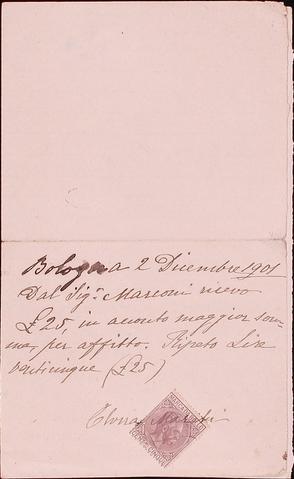 Bologna 2 Dicembre 1901
Dal Sigr. Marconi ricevo
£25, in aconto maggior som-
ma, per affitto. Ripeto Lire
venticinque (£25)
Mariti